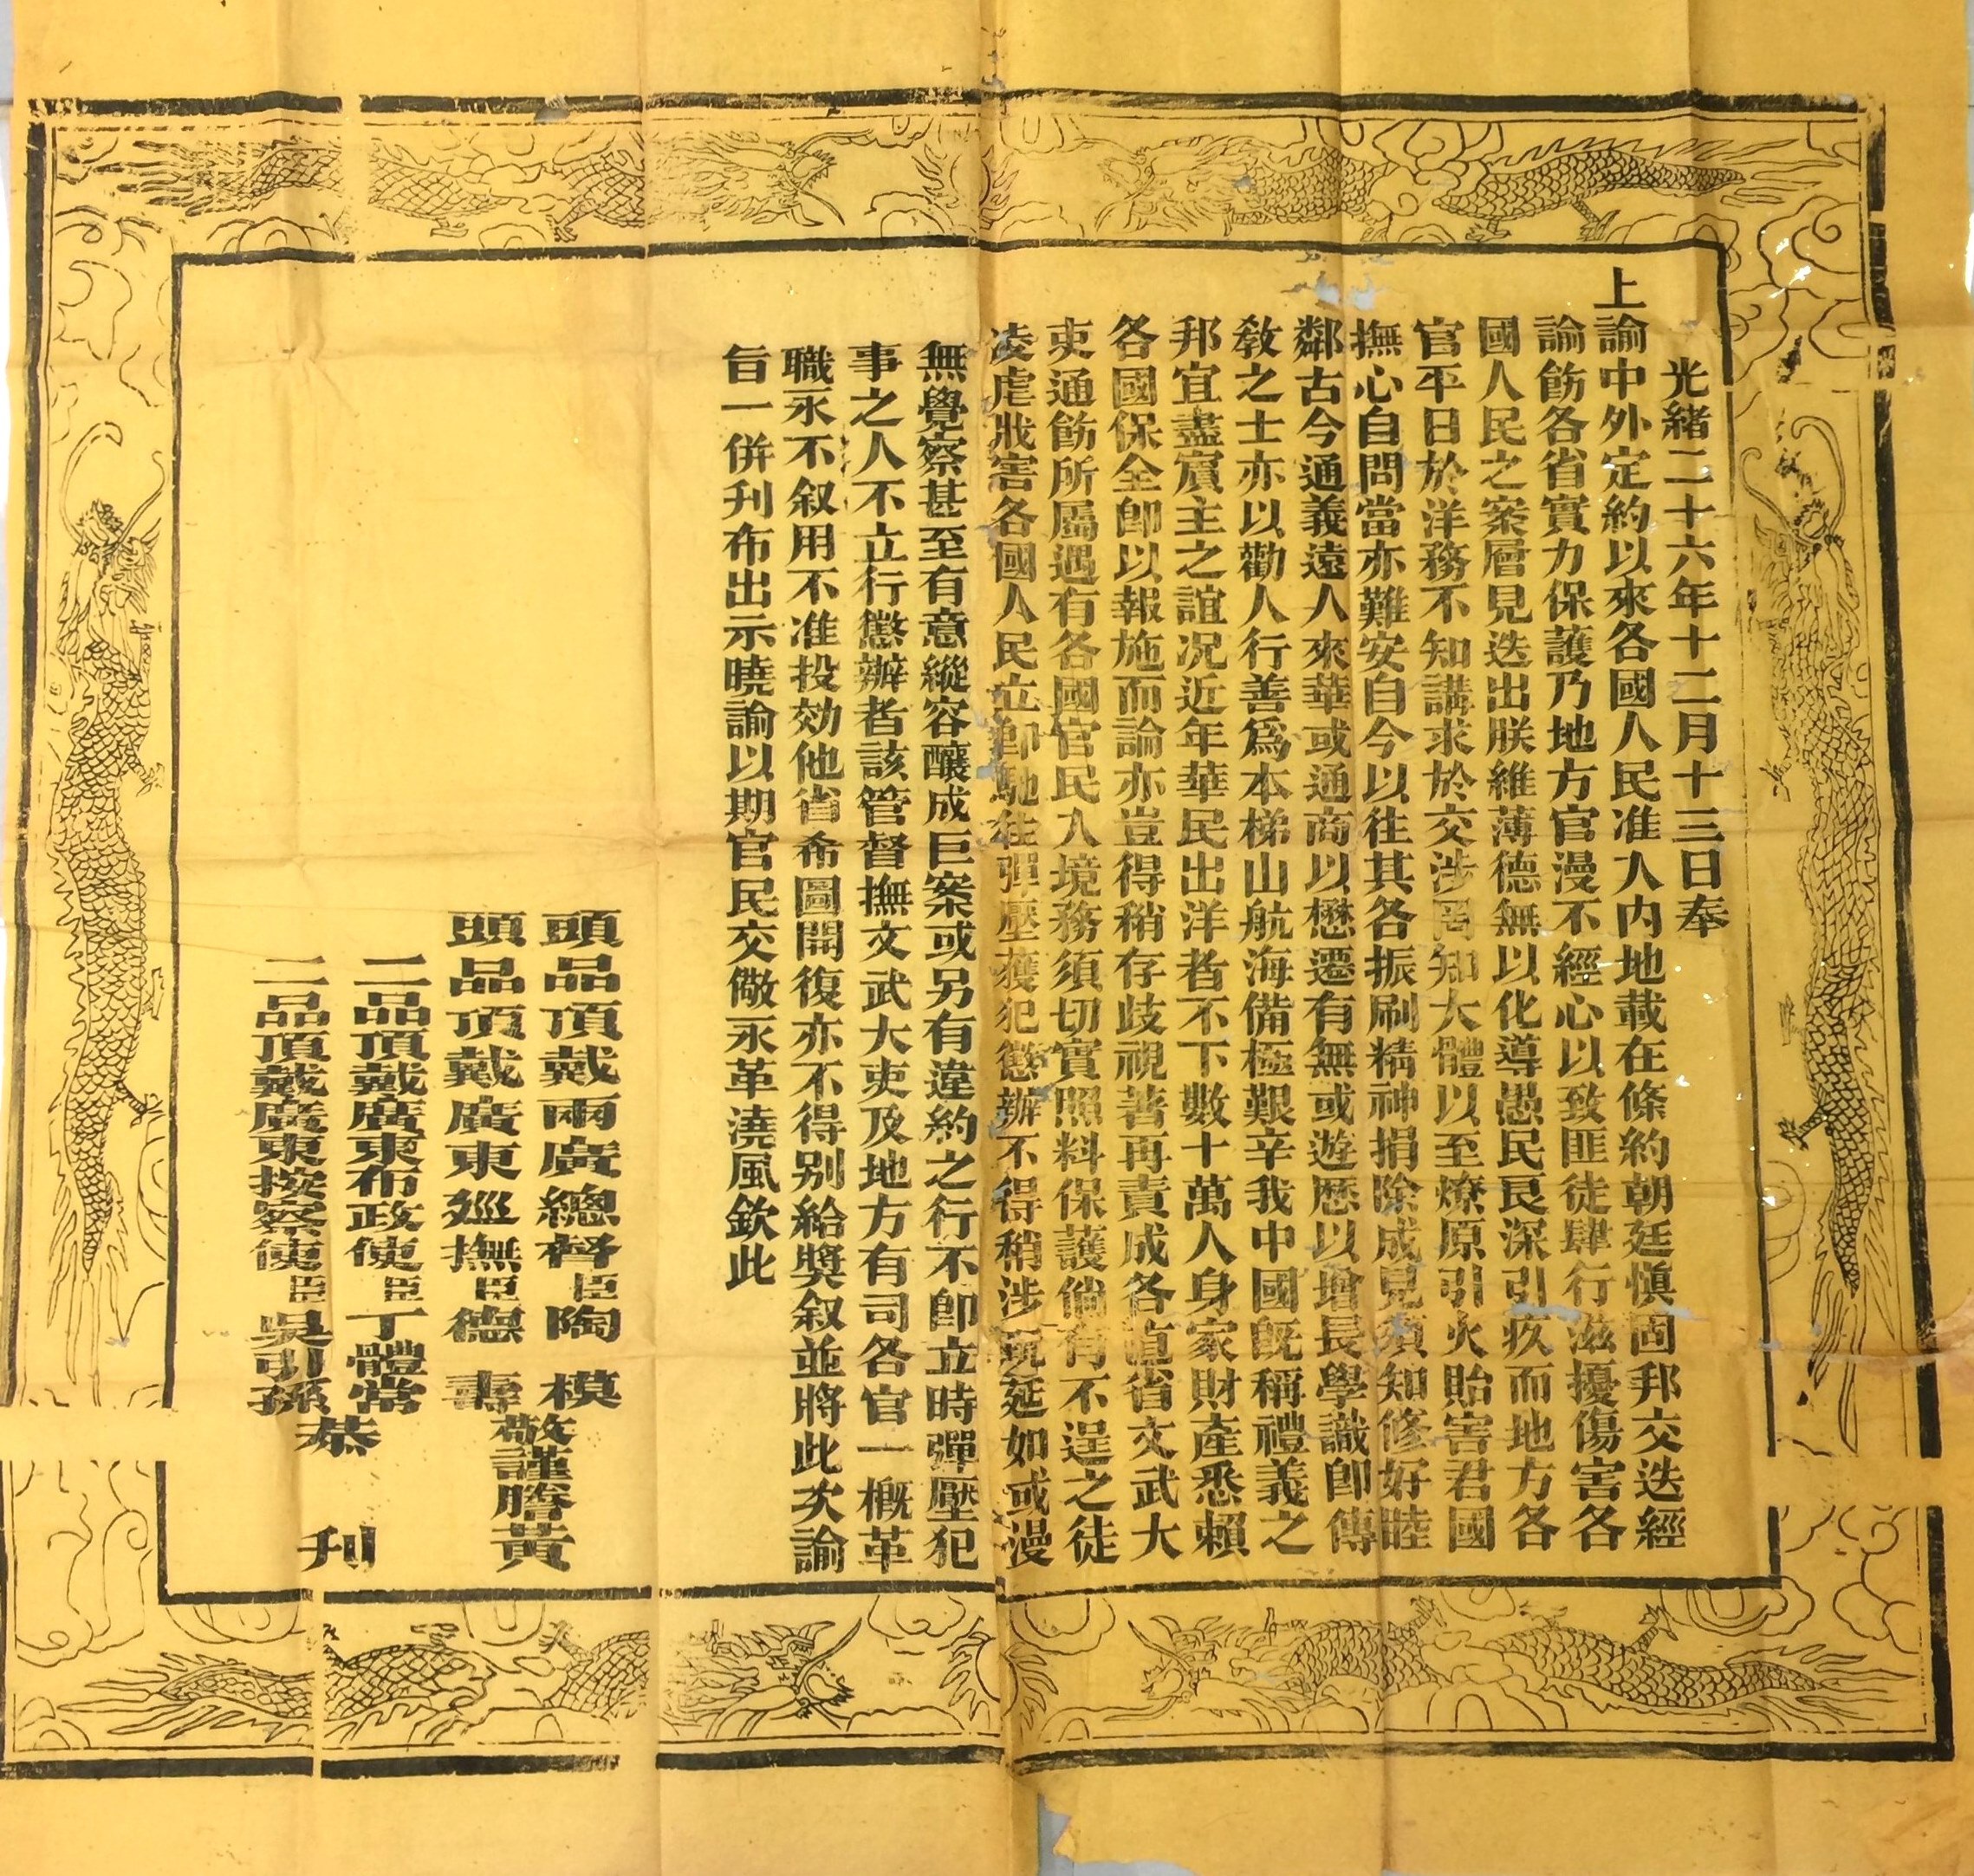 光緒二十六年十二月十三日奉
上諭中外定約以來各國人民准入內地載在條約朝廷愼固邦交迭經
諭飭各省實力保護乃地方官漫不經心以致匪徒肆行滋擾傷害各
國人民之案層見迭出朕維薄德無以化導愚民艮深引疚而地方各
官平日於洋務不知講求於交涉罔知大體以至燎原引火貽害君國
撫心自問當亦難安自今以往其各振刷精神捐除成見須知修好睦
鄰古今通義遠人來華或通商以懋遷有無或遊歷以增長學識卽傳
敎之士亦以勸人行善爲本梯山航海備極艱辛我中國旣稱禮義之
邦宜盡賓主之誼况近年華民出洋者不下數十萬人身家財產悉賴
各國保全卽以報施而論亦豈得稍存歧視著再責成各直省文武大
吏通飭所屬遇有各國官民入境務須切實照料保護倘有不逞之徒
凌虐戕害各國人民立卽馳往彈壓獲犯懲辦不得稍涉玩延如或漫
無覺察甚至有意縱容釀成巨案或另有違約之行不卽立時彈壓犯
事之人不立行懲辦者該管督撫文武大吏及地方有司各官一槪革
職永不叙用不准投効他省希圖開復亦不得别給獎叙並將此次諭
旨一併刋布出示曉諭以期官民交儆永革澆風欽此
頭品頂戴兩廣總督臣陶模
頭品頂戴廣東廵撫臣德壽
敬謹謄黃
二品頂戴廣東布政使臣丁體常
二品頂戴廣東按察使臣吳引孫
恭刋